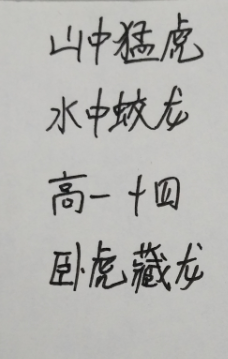 山中猛虎
水中蛟龙
高一十四
卧虎藏龙